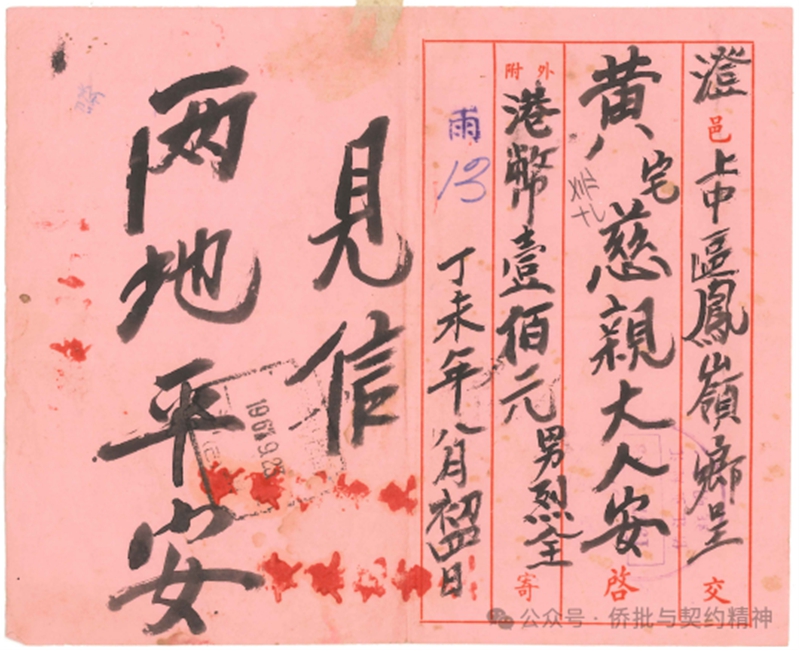 澄邑上中區鳳嶺鄉呈交
黄宅慈親大人安啓
外附港幣壹佰元男烈全寄
雨
13
丁未年八月初四日
見信
兩地平安
公众号·侨批与契约精神